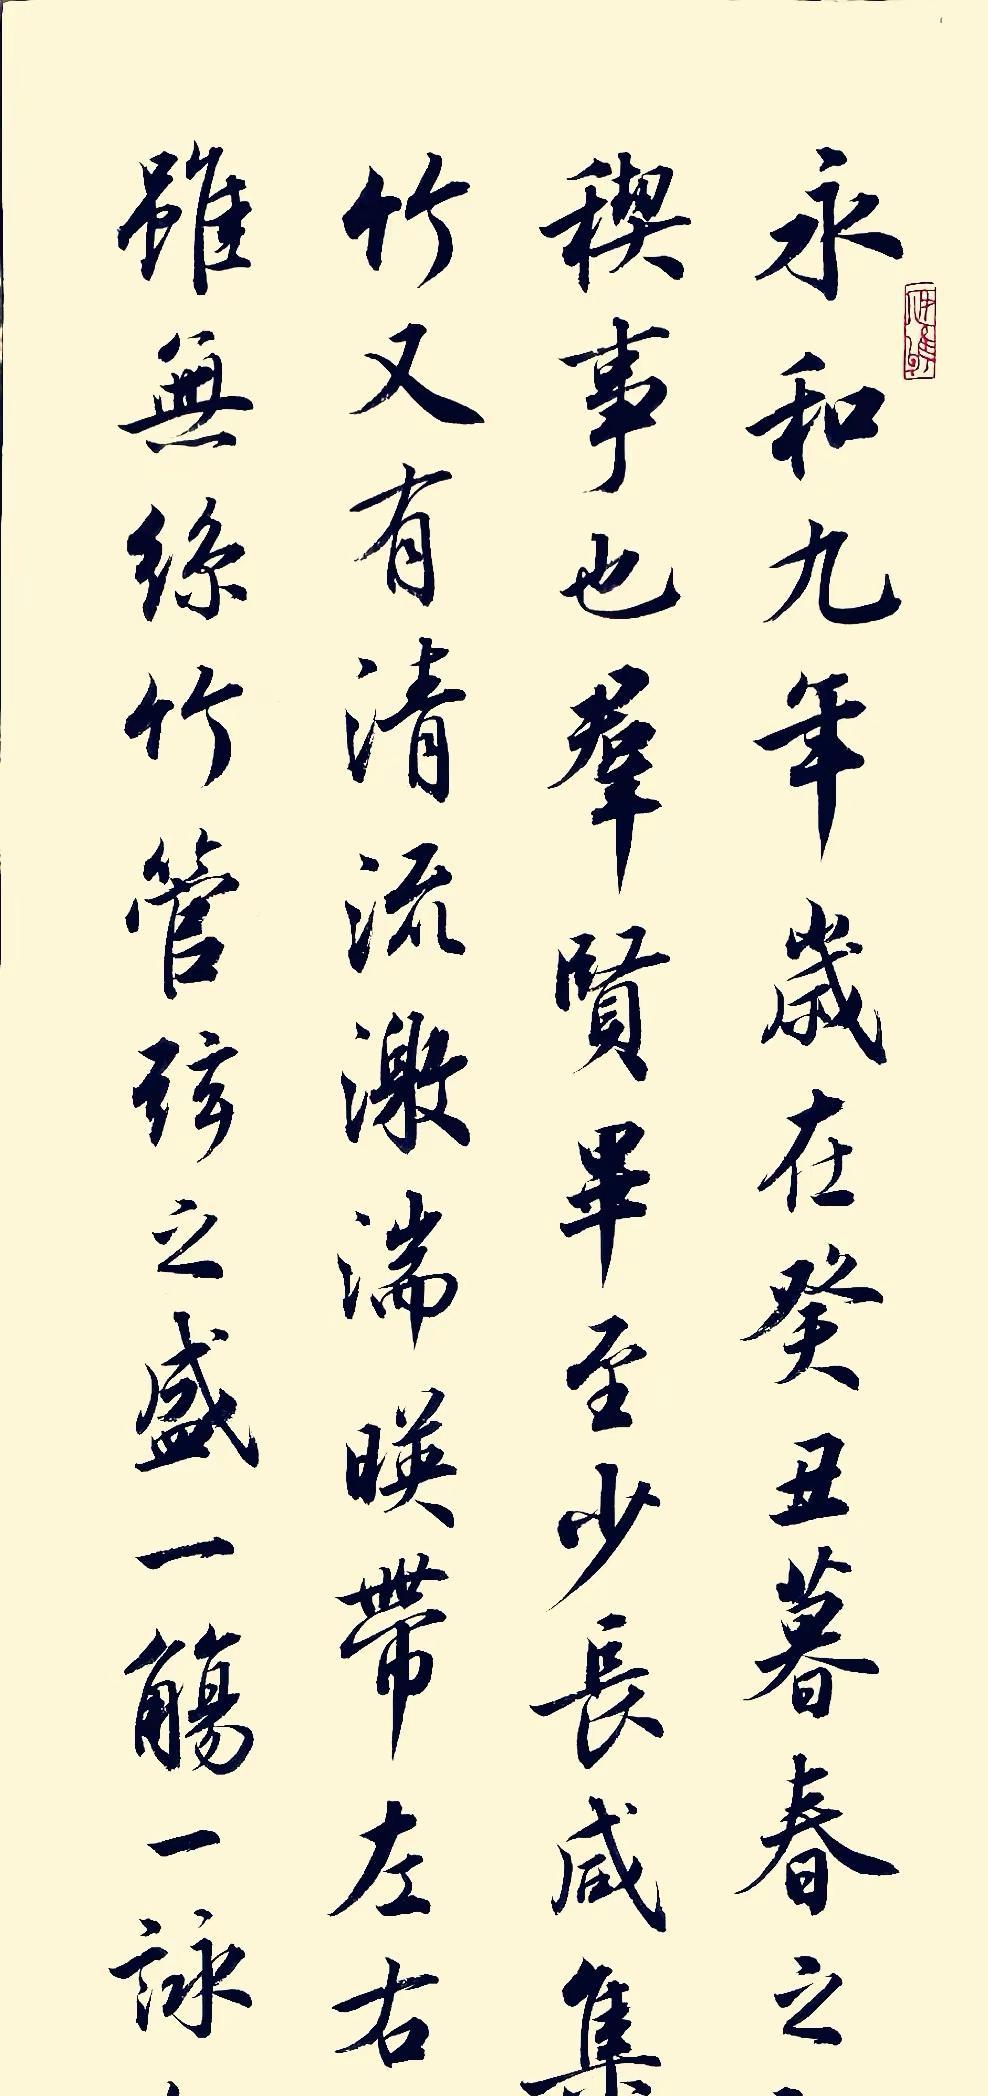 永和九年歲在癸丑暮春之
稧事也羣賢畢至少長咸集
竹又有清流激湍暎帶左右
雖無絲竹管弦之盛一觴一詠